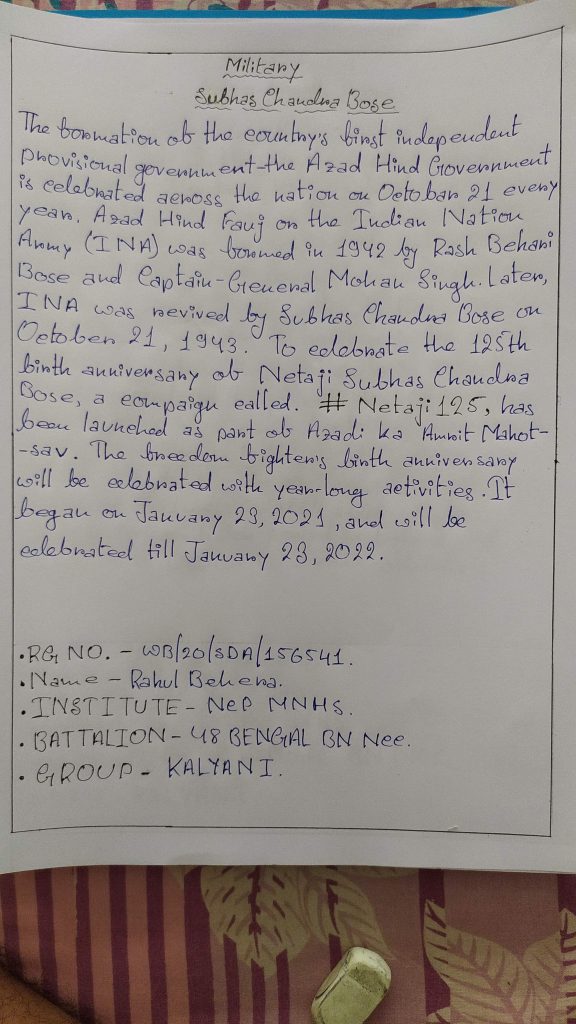 Military
Subhas Chandra Bose
The formation of the country's first independent
provisional government-the Azad Hind Government
is celebrated across the nation on October 21 every
year. Azad Hind Fauj or the Indian Nation
Army (INA) was formed in 1942 by Rash Behari
Bose and Captain-General Mohan Singh. Later,
INA was revived by Subhas Chandra Bose on
October 21, 1943. To celebrate the 125th
birth anniversary of Netaji Subhas Chandra
Bose, a compaign called. # Netaji125, has
been launched as part of Azadi ka Amrit Mahot-
-sav. The freedom fighter's birth anniversary
will be celebrated with year-long activities. It
began on January 23, 2021, and will be
celebrated till January 23, 2022.
• RG NO. - WB/20/SDA/156541.
• Name - Rahul Behera.
• INSTITUTE - NCP MNHS.
• BATTALION - 48 BENGAL BN Ncc.
• GROUP - KALYANI.